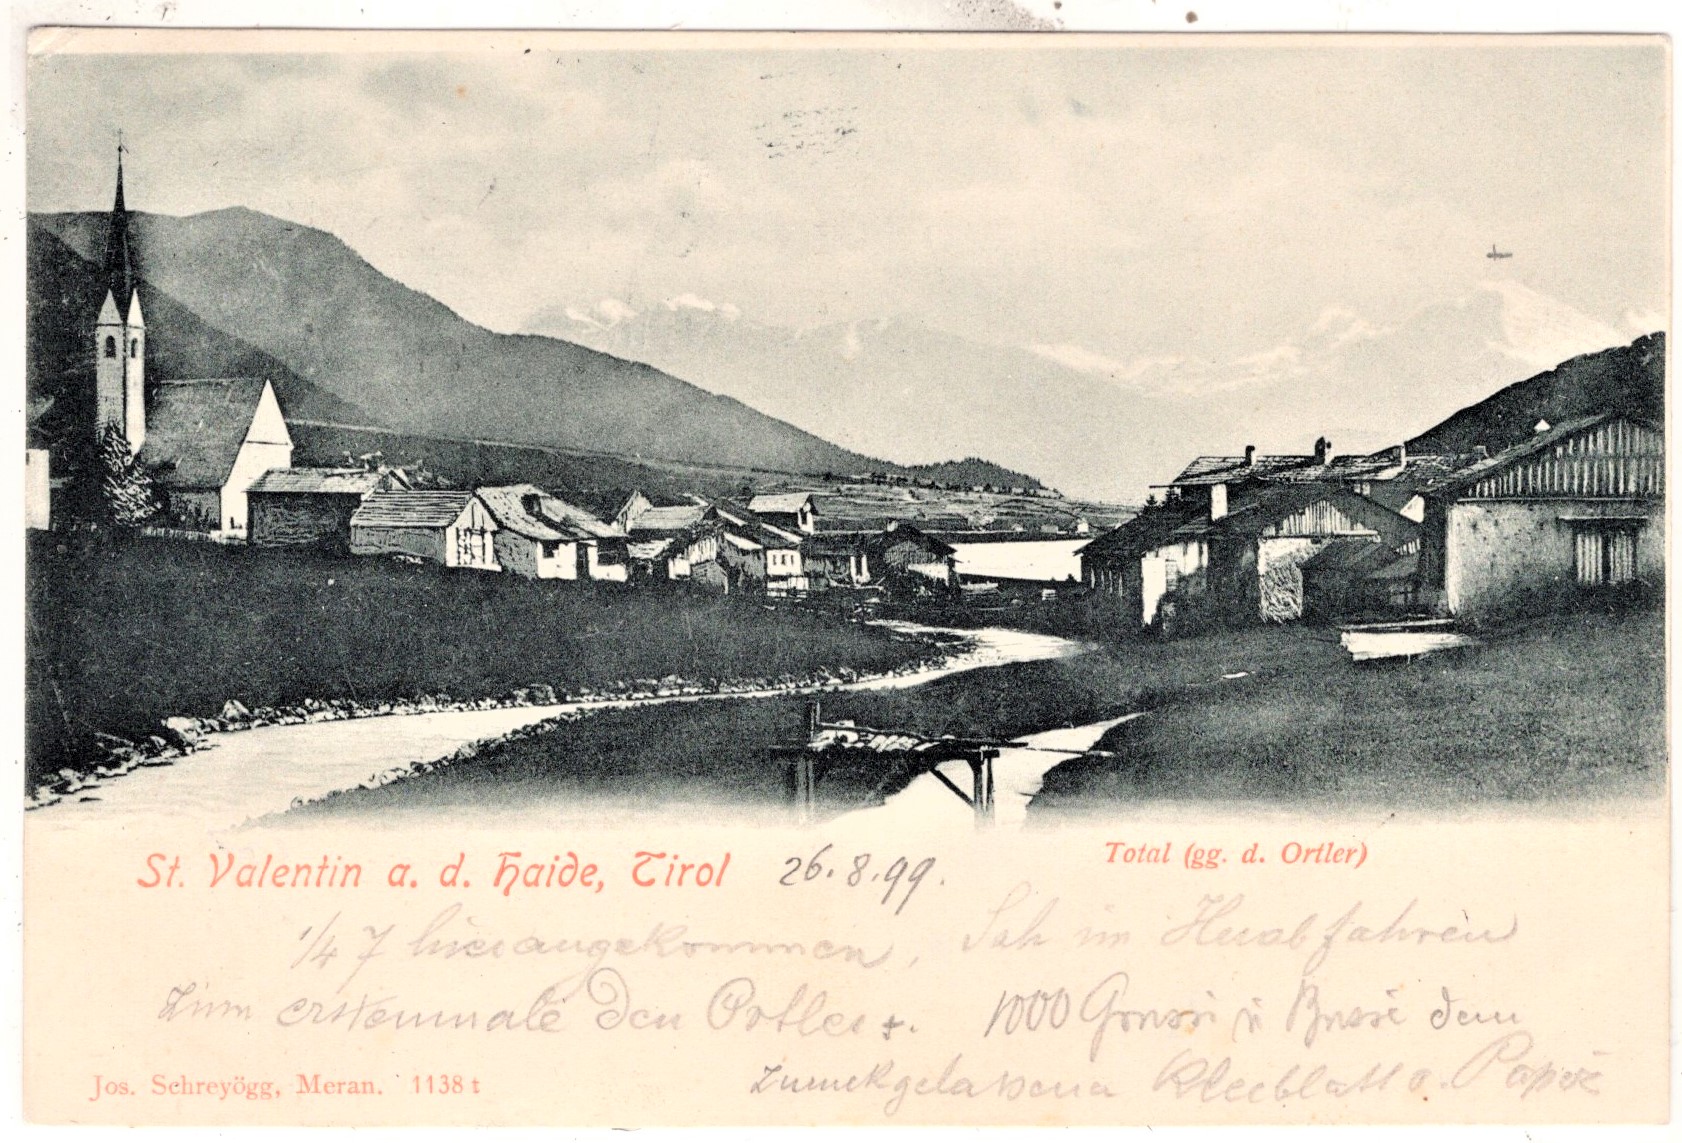 St. Valentin a. d. Haide, Tirol
26.8.99.
Total (gg. d. Ortler)
1/4 7 hier angekommen, Sah im Herabfahren
zum erstenmale den Ortler +. 1000 Grussi u Bussi dem
zurückgelassenen Kleeblatt v. Papa
Jos. Schreyögg, Meran. 1138 t